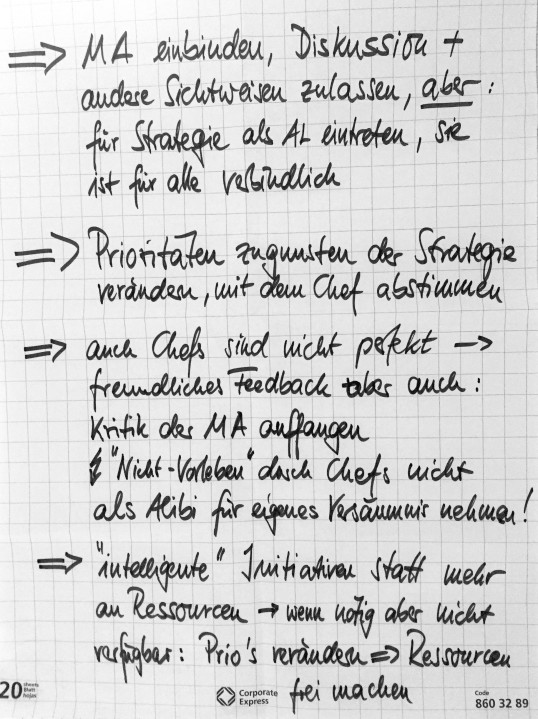 => MA einbinden, Diskussion +
andere Sichtweisen zulassen, aber:
für Strategie als AL eintreten, sie
ist für alle verbindlich
=> Prioritäten zugunsten der Strategie
verändern, mit dem Chef abstimmen
=> auch Chefs sind nicht perfekt →
freundliches Feedback aber auch:
Kritik der MA auffangen
"Nicht-Vorleben" durch Chefs nicht
als Alibi für eigenes Versäumnis nehmen!
=> "intelligente" Initiativen statt mehr
an Ressourcen → wenn nötig aber nicht
verfügbar: Prio's verändern => Ressourcen
frei machen
20 sheets Blatt hojas
Corporate Express
Code 860 32 89